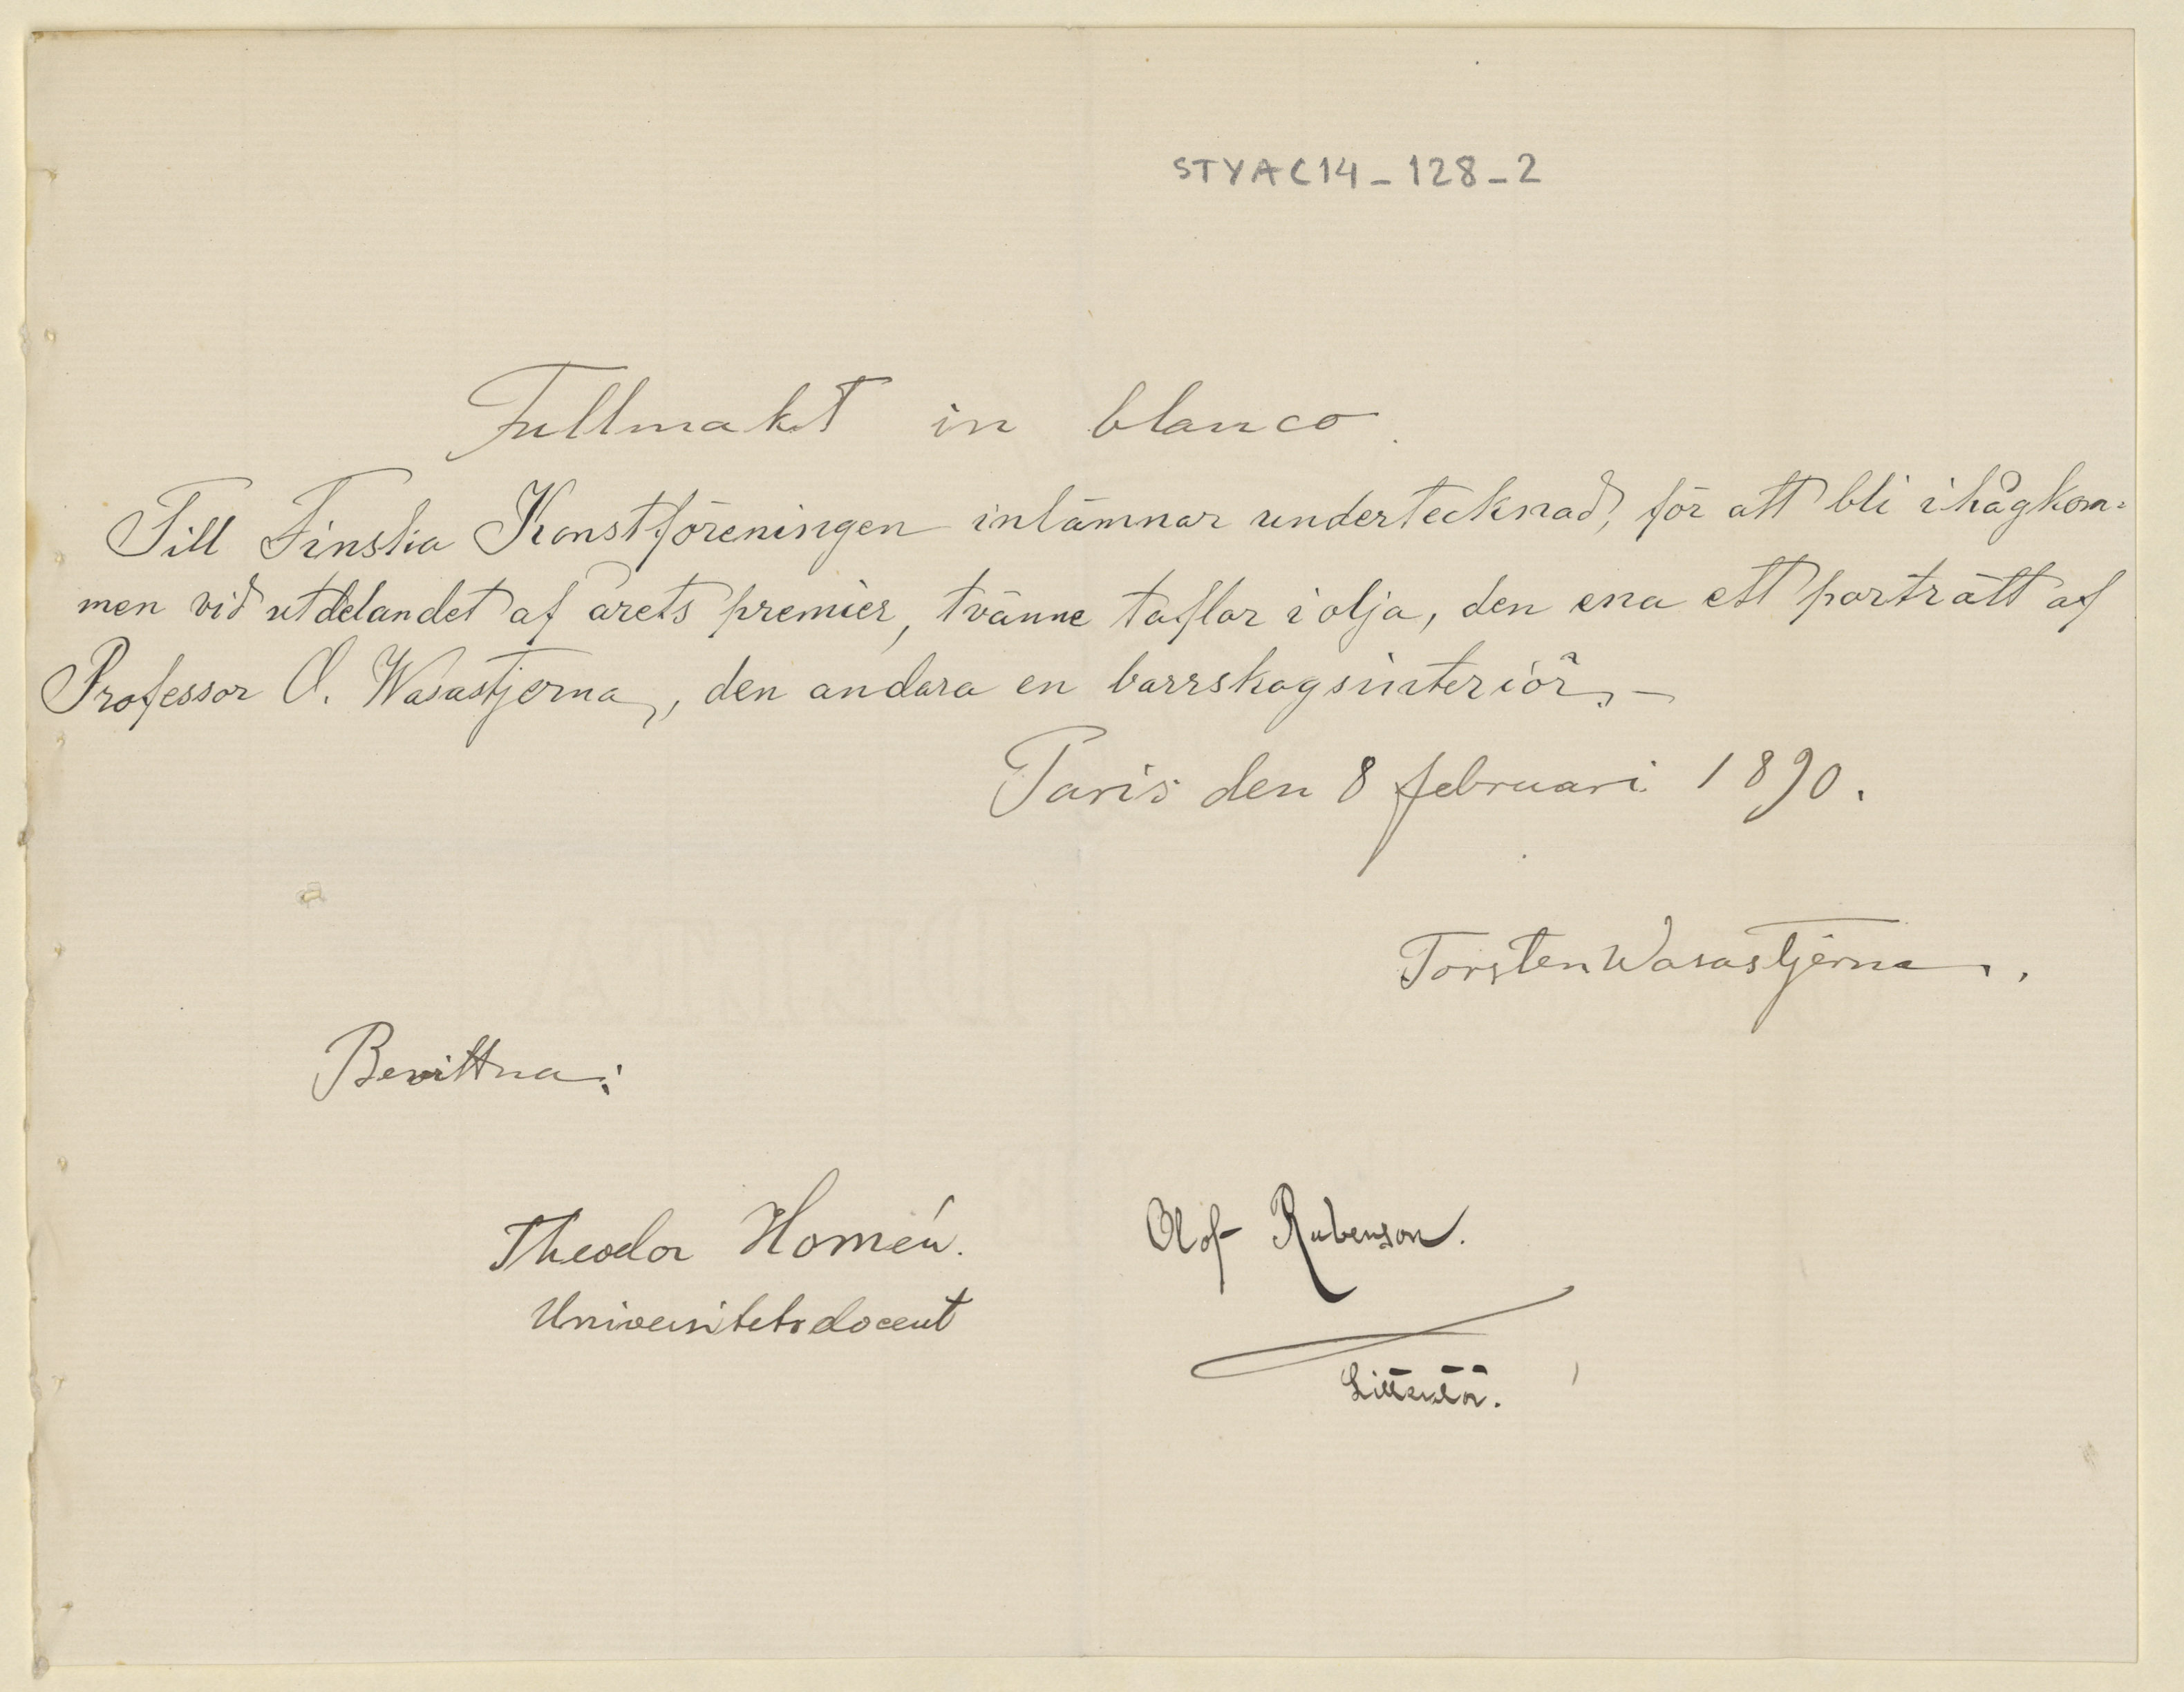 STYAC14_128_2
Fullmakt in blanco.
Till Finska Konstföreningen inlämnar undertecknad, för att bli ihågkom=
men vid utdelandet af årets premier, tvänne taflor i olja, den ena ett porträtt af
Professor O. Wasastjerna, den andara en barrskogsinteriör. –
Paris den 8 februari 1890.
Torsten Wasastjerna.
Bevittna:
Theodor Homén. Olof Rubenson.
Universitetsdocent
Litteratör.